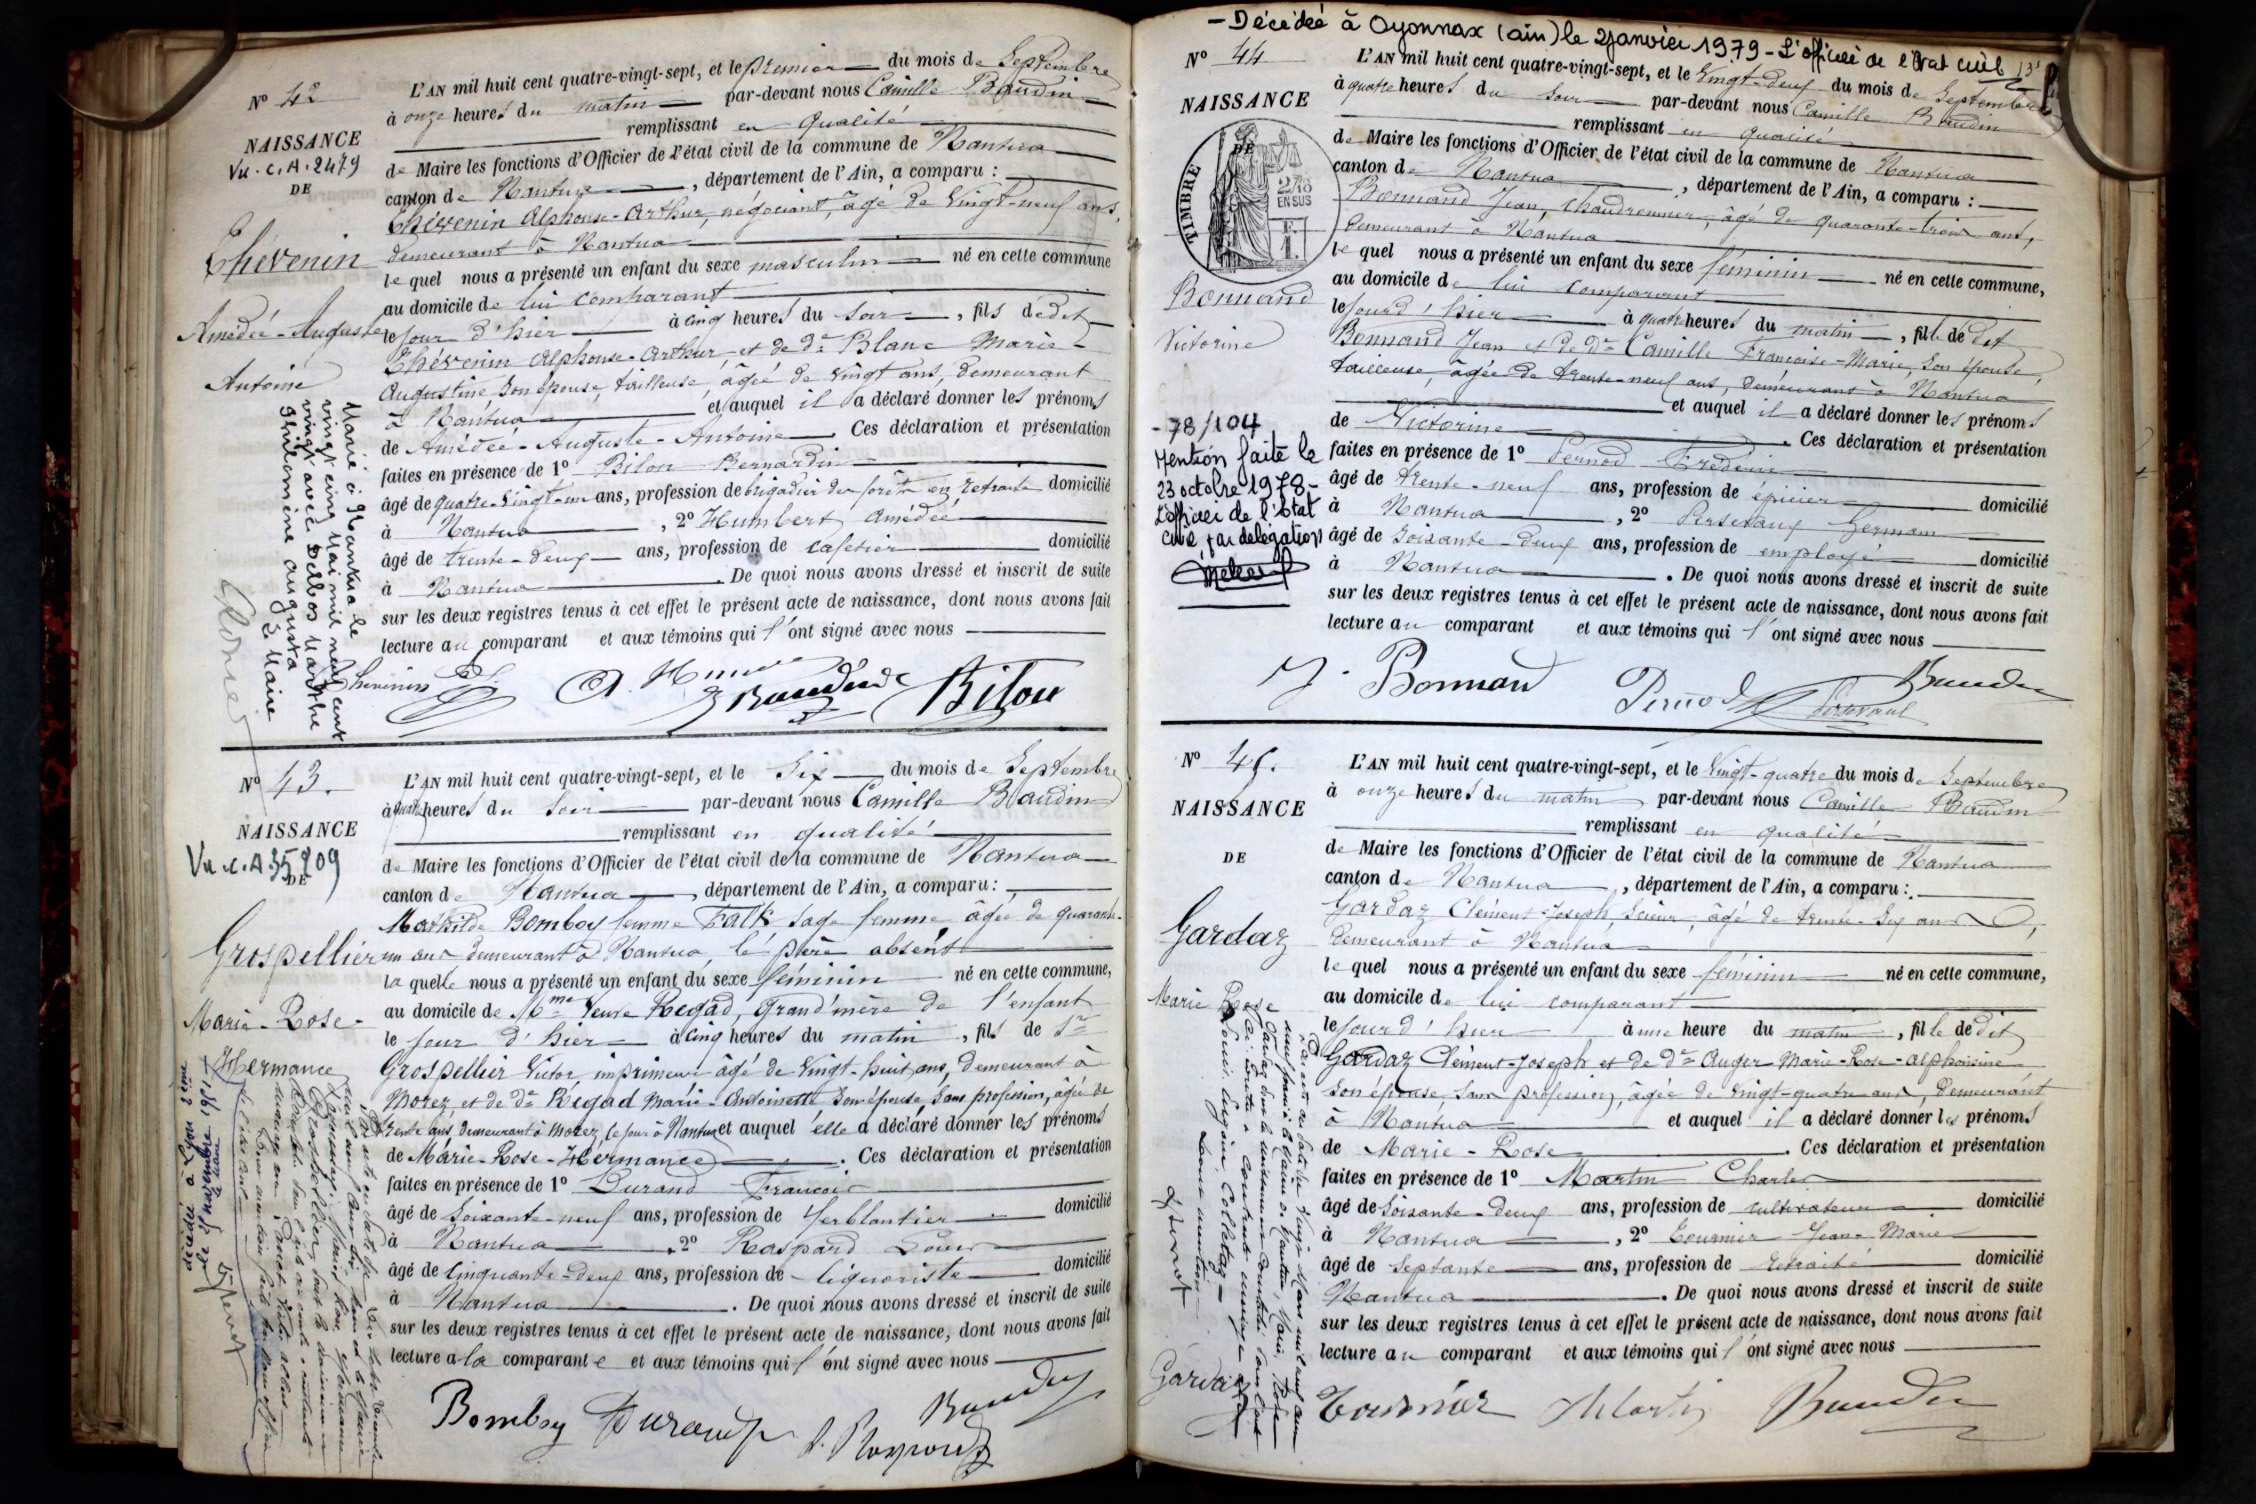 Nº 42
NAISSANCE
Vu. C.A. 2479
DE
Thévenin
Amédée-Auguste
Antoine
Marié à Nantua le
vingt cinq Mai mil neuf cent
vingt avec Delbos Marthe
Philomène Augusta
Le Maire
L'AN mil huit cent quatre-vingt-sept, et le premier du mois de Septembre
à onze heures du matin par-devant nous Camille Baudin
remplissant en qualité
de Maire les fonctions d'Officier de l'état civil de la commune de Nantua
canton de Nantua, département de l'Ain, a comparu :
Thévenin Alphonse-Arthur, négociant, âgé de vingt-neuf ans,
demeurant à Nantua
lequel nous a présenté un enfant du sexe masculin né en cette commune
au domicile de lui comparant
le jour d'hier à cinq heures du soir, fils dedit
Thévenin Alphonse-Arthur et de dᵉ Blanc Marie-
Augustine son épouse, tailleuse, âgée de vingt ans, demeurant
à Nantua et auquel il a déclaré donner les prénoms
de Amédée-Auguste-Antoine. Ces déclaration et présentation
faites en présence de 1º Bilon Bernardin
âgé de quatre-vingt-un ans, profession de brigadier des forêts en retraite domicilié
à Nantua, 2º Humbert Amédée
âgé de trente-deux ans, profession de cafetier domicilié
à Nantua. De quoi nous avons dressé et inscrit de suite
sur les deux registres tenus à cet effet le présent acte de naissance, dont nous avons fait
lecture au comparant et aux témoins qui l'ont signé avec nous
Thévenin Baudin Bilon
Nº 43.
NAISSANCE
Vu C.A. 35209
DE
Grospellier
Marie-Rose-
Hermance
décédée à Lyon 2ème
le 5 novembre 1951
L'AN mil huit cent quatre-vingt-sept, et le Six du mois de Septembre
à quatre heures du soir par-devant nous Camille Baudin
remplissant en qualité
de Maire les fonctions d'Officier de l'état civil de la commune de Nantua
canton de Nantua, département de l'Ain, a comparu :
Mathilde Bomboy femme Falk, sage femme âgée de quarante-
un ans demeurant à Nantua, le père absent
laquelle nous a présenté un enfant du sexe féminin né en cette commune,
au domicile de Mme Veuve Régad, grand'mère de l'enfant
le jour d'hier à cinq heures du matin, fils de Sr
Grospellier Victor, imprimeur âgé de vingt-huit ans, demeurant à
Morez, et de dᵉ Régad Marie-Antoinette son épouse sans profession, âgée de
trente ans, demeurant à Morez, ce jour à Nantua et auquel elle a déclaré donner les prénoms
de Marie-Rose-Hermance. Ces déclaration et présentation
faites en présence de 1º Durand François
âgé de Soixante-neuf ans, profession de ferblantier domicilié
à Nantua, 2º Raspard Louis
âgé de Cinquante-deux ans, profession de liquoriste domicilié
à Nantua. De quoi nous avons dressé et inscrit de suite
sur les deux registres tenus à cet effet le présent acte de naissance, dont nous avons fait
lecture a la comparante et aux témoins qui l'ont signé avec nous
Bomboy Durand Baudin
- Décédée à Oyonnax (ain) le 2 janvier 1979 - L'officier de l'Etat civil
Nº 44
NAISSANCE
DE
TIMBRE
2/10
EN SUS
Bonnand
Victorine
- 78/104
Mention faite le
23 octobre 1978 -
L'officier de l'Etat
civil par délégation
L'AN mil huit cent quatre-vingt-sept, et le Vingt-deux du mois de Septembre
à quatre heures du soir par-devant nous Camille Baudin
remplissant en qualité
de Maire les fonctions d'Officier de l'état civil de la commune de Nantua
canton de Nantua, département de l'Ain, a comparu :
Bonnand Jean, chaudronnier, âgé de quarante-trois ans,
demeurant à Nantua
lequel nous a présenté un enfant du sexe féminin né en cette commune,
au domicile de lui comparant
le jourd'hier à quatre heures du matin, fille dedit
Bonnand Jean et de dᵉ Camille Françoise-Marie, son épouse,
tailleuse, âgée de trente-neuf ans, demeurant à Nantua
et auquel il a déclaré donner les prénoms
de Victorine. Ces déclaration et présentation
faites en présence de 1º Pernod Frédéric
âgé de trente-neuf ans, profession de épicier domicilié
à Nantua, 2º Germain
âgé de Soixante-deux ans, profession de employé domicilié
à Nantua. De quoi nous avons dressé et inscrit de suite
sur les deux registres tenus à cet effet le présent acte de naissance, dont nous avons fait
lecture au comparant et aux témoins qui l'ont signé avec nous
J. Bonnand Pernod Baudin
Nº 45.
NAISSANCE
DE
Gardaz
Marie Rose
L'AN mil huit cent quatre-vingt-sept, et le Vingt-quatre du mois de Septembre
à onze heures du matin par-devant nous Camille Baudin
remplissant en qualité
de Maire les fonctions d'Officier de l'état civil de la commune de Nantua
canton de Nantua, département de l'Ain, a comparu :
Gardaz Clément-Joseph, scieur, âgé de trente-six ans,
demeurant à Nantua
lequel nous a présenté un enfant du sexe féminin né en cette commune,
au domicile de lui comparant
le jourd'hier à une heure du matin, fille dedit
Gardaz Clément-Joseph et de dᵉ Auger Marie-Rose-Alphonsine
son épouse, sans profession, âgée de vingt-quatre ans, demeurant
à Nantua et auquel il a déclaré donner les prénoms
de Marie-Rose. Ces déclaration et présentation
faites en présence de 1º Martin Charles
âgé de Soixante-deux ans, profession de cultivateur domicilié
à Nantua, 2º Tournier Jean-Marie
âgé de Septante ans, profession de retraité domicilié
Nantua. De quoi nous avons dressé et inscrit de suite
sur les deux registres tenus à cet effet le présent acte de naissance, dont nous avons fait
lecture au comparant et aux témoins qui l'ont signé avec nous
Gardaz Tournier Martin Baudin